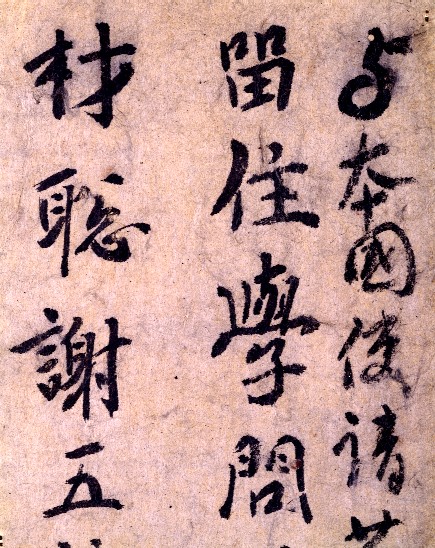 与本國使請
留住學問
材聡謝五